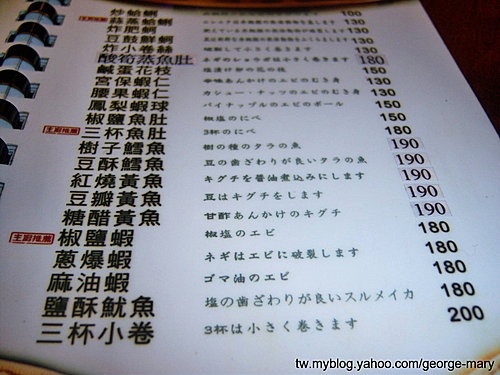 炒蛤蜊 100
主廚推薦 蒜蒸蛤蜊 130
炸肥蚵 130
豆鼓鮮蚵 130
炸小卷絲 130
酸筍蒸魚肚 180
鹹蛋花枝 150
宮保蝦仁 130
腰果蝦仁 カシュー・ナッツのエビのむき身 130
鳳梨蝦球 パイナップルのエビのボール 150
椒鹽魚肚 椒塩のにべ 150
主廚推薦 三杯魚肚 3杯のにべ 180
樹子鱈魚 樹の種のタラの魚 190
豆酥鱈魚 豆の歯ざわりが良いタラの魚 190
紅燒黃魚 キグチを醤油煮込みにします 190
豆瓣黃魚 豆はキグチをします 190
糖醋黃魚 甘酢あんかけのキグチ 190
主廚推薦 椒鹽蝦 椒塩のエビ 180
蔥爆蝦 ネギはエビに破裂します 180
麻油蝦 ゴマ油のエビ 180
鹽酥魷魚 塩の歯ざわりが良いスルメイカ 180
三杯小卷 3杯は小さく巻きます 200
tw.myblog.yahoo.com/george-mary